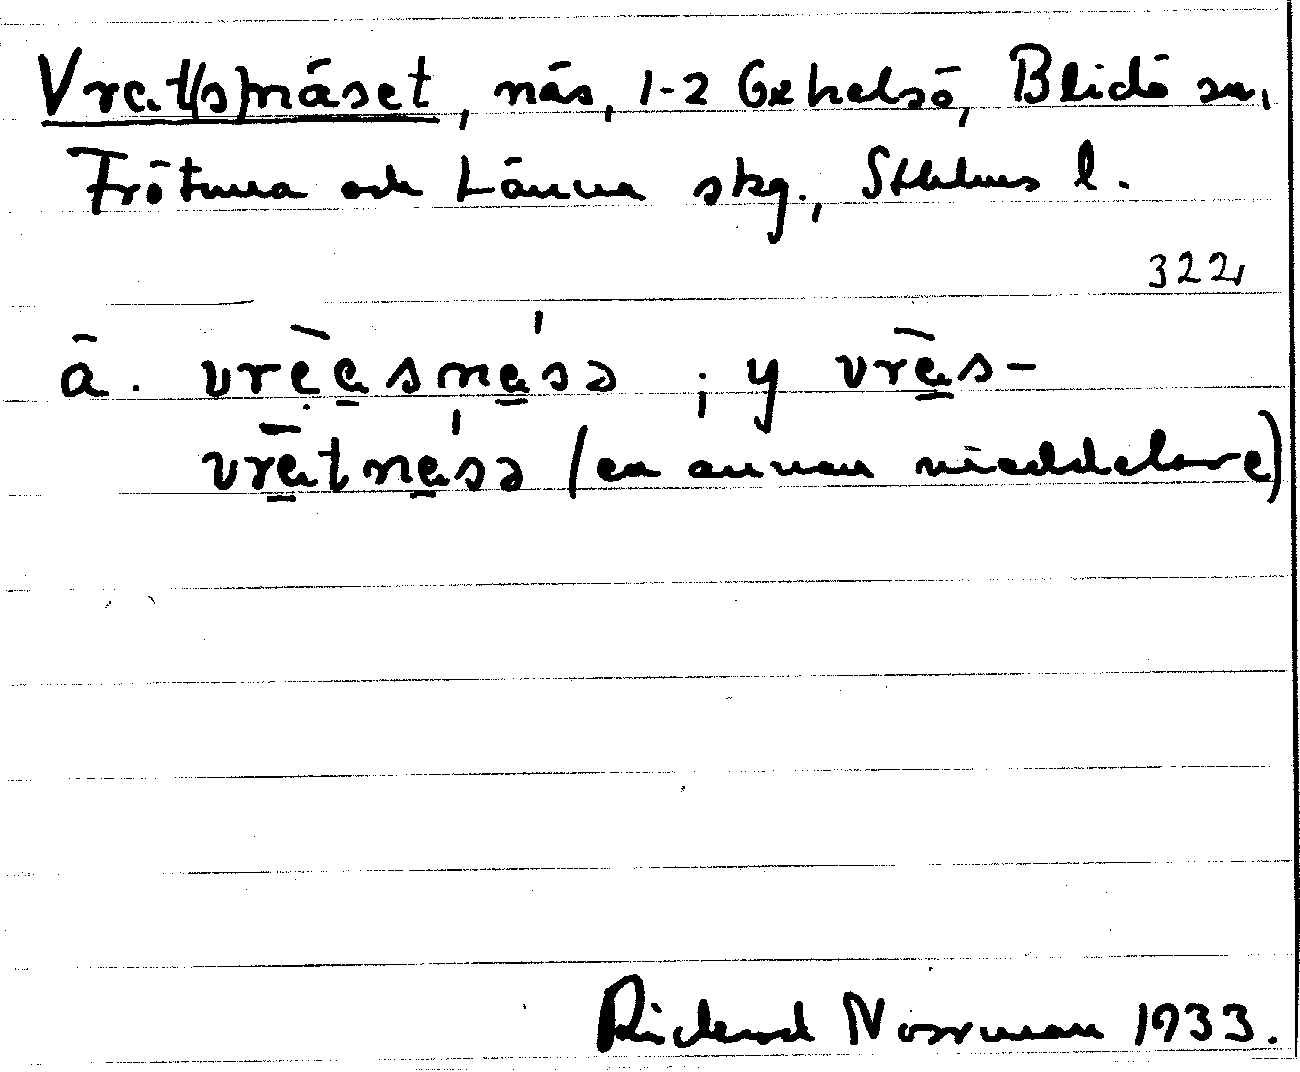 Vrat(s)näset, näs, 1-2 Gehelsö, Blidö sn,
Frötuna och Länna skg., Sthlms l.
322,
ā. vrēa̱sna̱sə ; y vrā̱s-
vrā̱tna̱sə (en annan meddelare)
Rickard Norrman 1933.